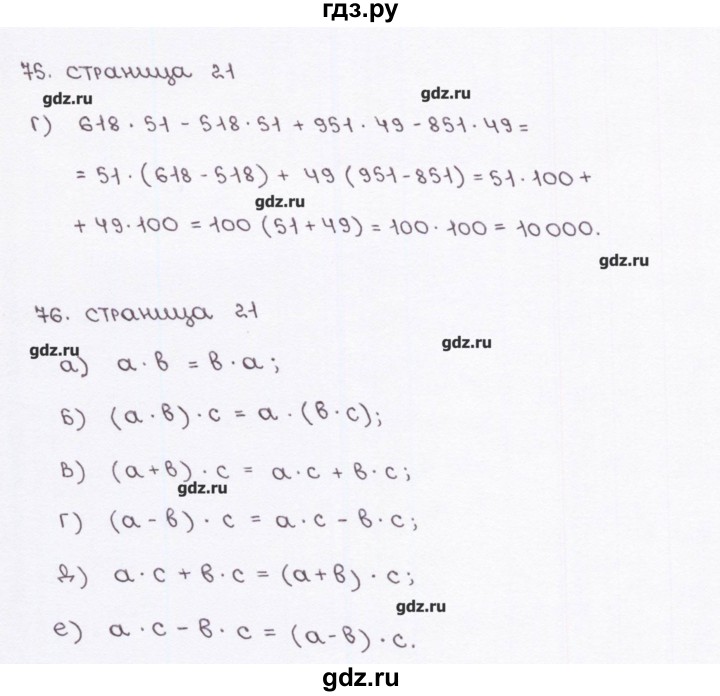 гдз.ру
75. страница 21
gdz.ru
gdz.ru
г) 618 · 51 - 518 · 51 + 951 · 49 - 851 · 49 =
= 51 · (618 - 518) + 49 (951 - 851) = 51 · 100 +
gdz.ru
+ 49 · 100 = 100 (51 + 49) = 100 · 100 = 10000.
gdz.ru
76. страница 21
gdz.ru
gdz.ru
а) a · в = в · a;
б) (a · в) · c = a · (в · c);
в) (a + в) · c = a · c + в · c;
gdz.ru
г) (a - в) · c = a · c - в · c;
д) a · c + в · c = (a + в) · c;
gdz.ru
е) a · c - в · c = (a - в) · c.
gdz.ru